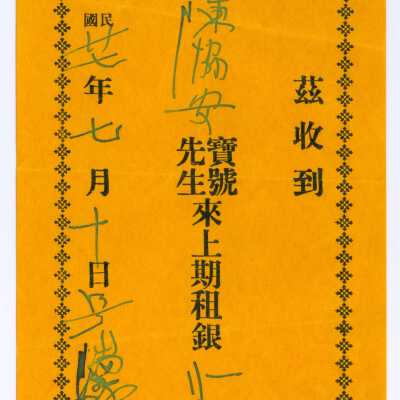 茲收到
陳協安 寶號先生來上期租銀
民國廿七年七月十日